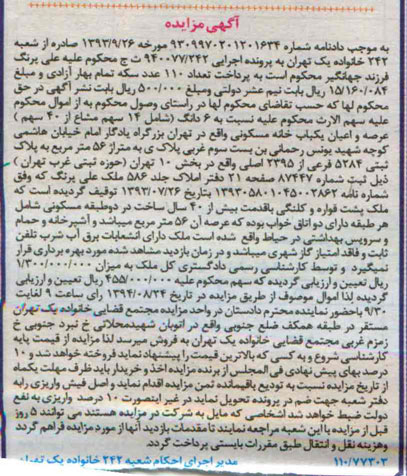 آگهی مزایده
به موجب دادنامه شماره ۹۳۰۹۹۷۰۲۰۱۲۰۱۶۳۴ مورخه ۱۳۹۳/۹/۲۶ صادره از شعبه
۲۴۲ خانواده یک تهران به پرونده اجرایی ۹۴۰۰۷۷/۲۴۲ ت ج محکوم علیه علی پرنگ
فرزند جهانگیر محکوم است به پرداخت تعداد ۱۱۰ عدد سکه تمام بهار آزادی و مبلغ
۱۵/۱۶۰/۰۸۴ ریال بابت نیم عشر دولتی و مبلغ ۵۰۰/۰۰۰ ریال بابت نشر آگهی در حق
محکوم لها که حسب تقاضای محکوم لها در راستای وصول محکوم به از اموال محکوم
علیه سهم الارث محکوم علیه نسبت به ۶ دانگ (شامل ۱۴ سهم مشاع از ۴۰ سهم)
عرصه و اعیان یکباب خانه مسکونی واقع در تهران بزرگراه یادگار امام خیابان هاشمی
کوچه شهید یونس رحمانی بن بست سوم غربی پلاک ی به متراژ ۵۶ متر مربع به پلاک
ثبتی ۵۲۸۴ فرعی از ۲۳۹۵ اصلی واقع در بخش ۱۰ تهران (حوزه ثبتی غرب تهران)
ذیل ثبت شماره ۸۷۴۴۷ صفحه ۲۱ دفتر املاک جلد ۵۸۶ ملک علی پرنگ که وفق
شماره نامه ۱۳۹۳۰۵۸۰۱۰۴۵۰۰۲۸۶۲ بتاریخ ۱۳۹۳/۰۷/۲۶ توقیف گردیده است که
ملک پشت قواره و کلنگی باقدمت بیش از ۴۰ سال ساخت در دوطبقه مسکونی شامل
هر طبقه دارای دو اتاق خواب بوده که عرصه آن ۵۶ متر مربع میباشد و آشپزخانه و حمام
و سرویس بهداشتی در حیاط واقع شده است ملک دارای انشعابات برق آب شرب تلفن
ثابت و فاقد امتیاز گاز شهری میباشد و در زمان بازدید مشاهده شده مورد بهره برداری قرار
نمیگیرد و توسط کارشناس رسمی دادگستری کل ملک به میزان ۱/۳۰۰/۰۰۰/۰۰۰
ریال تعیین و ارزیابی گردیده که سهم محکوم علیه ۴۵۵/۰۰۰/۰۰۰ ریال تعیین و ارزیابی
گردیده لذا اموال موصوف از طریق مزایده در تاریخ ۱۳۹۴/۰۸/۲۴ رای ساعت ۹ لغایت
۹/۳۰ باحضور نماینده محترم دادستان در واحد مزایده مجتمع قضایی خانواده یک تهران
مستقر در طبقه همکف ضلع جنوبی واقع در اتوبان شهیدمحلاتی خ نبرد جنوبی خ
زمزم غربی مجتمع قضایی خانواده یک تهران به فروش میرسد لذا مزایده از قیمت پایه
کارشناسی شروع و به کسی که بالاترین قیمت را پیشنهاد نماید فروخته خواهد شد و ۱۰
درصد بهای پیش نهادی فی المجلس از برنده مزایده اخذ و خریدار باید ظرف مهلت یکماه
از تاریخ مزایده نسبت به تودیع باقیمانده ثمن مزایده اقدام نماید و اصل فیش واریزی رابه
دفتر شعبه جهت ضم در پرونده تحویل نماید در غیر اینصورت ۱۰ درصد واریزی به نفع
دولت ضبط خواهد شد اشخاصی که مایل به شرکت در مزایده هستند می توانند ۵ روز
قبل از مزایده با این شعبه مراجعه نمایند تا مقدمات بازدید آنها از مورد مزایده فراهم گردد
وهزینه نقل و انتقال طبق مقررات بایستی پرداخت گردد.
۱۱۰/۷۷۳۰۳ مدیر اجرای احکام شعبه ۲۴۲ خانواده یک تهران